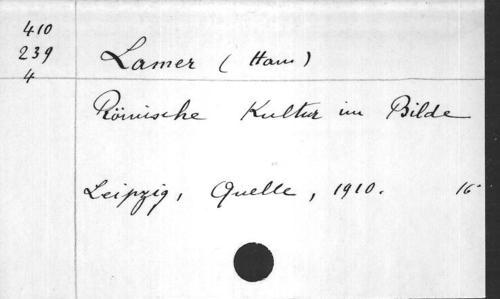 410
239
4
Lamer (Hans)
Römische Kultur im Bilde
Leipzig, Quelle, 1910. 16°